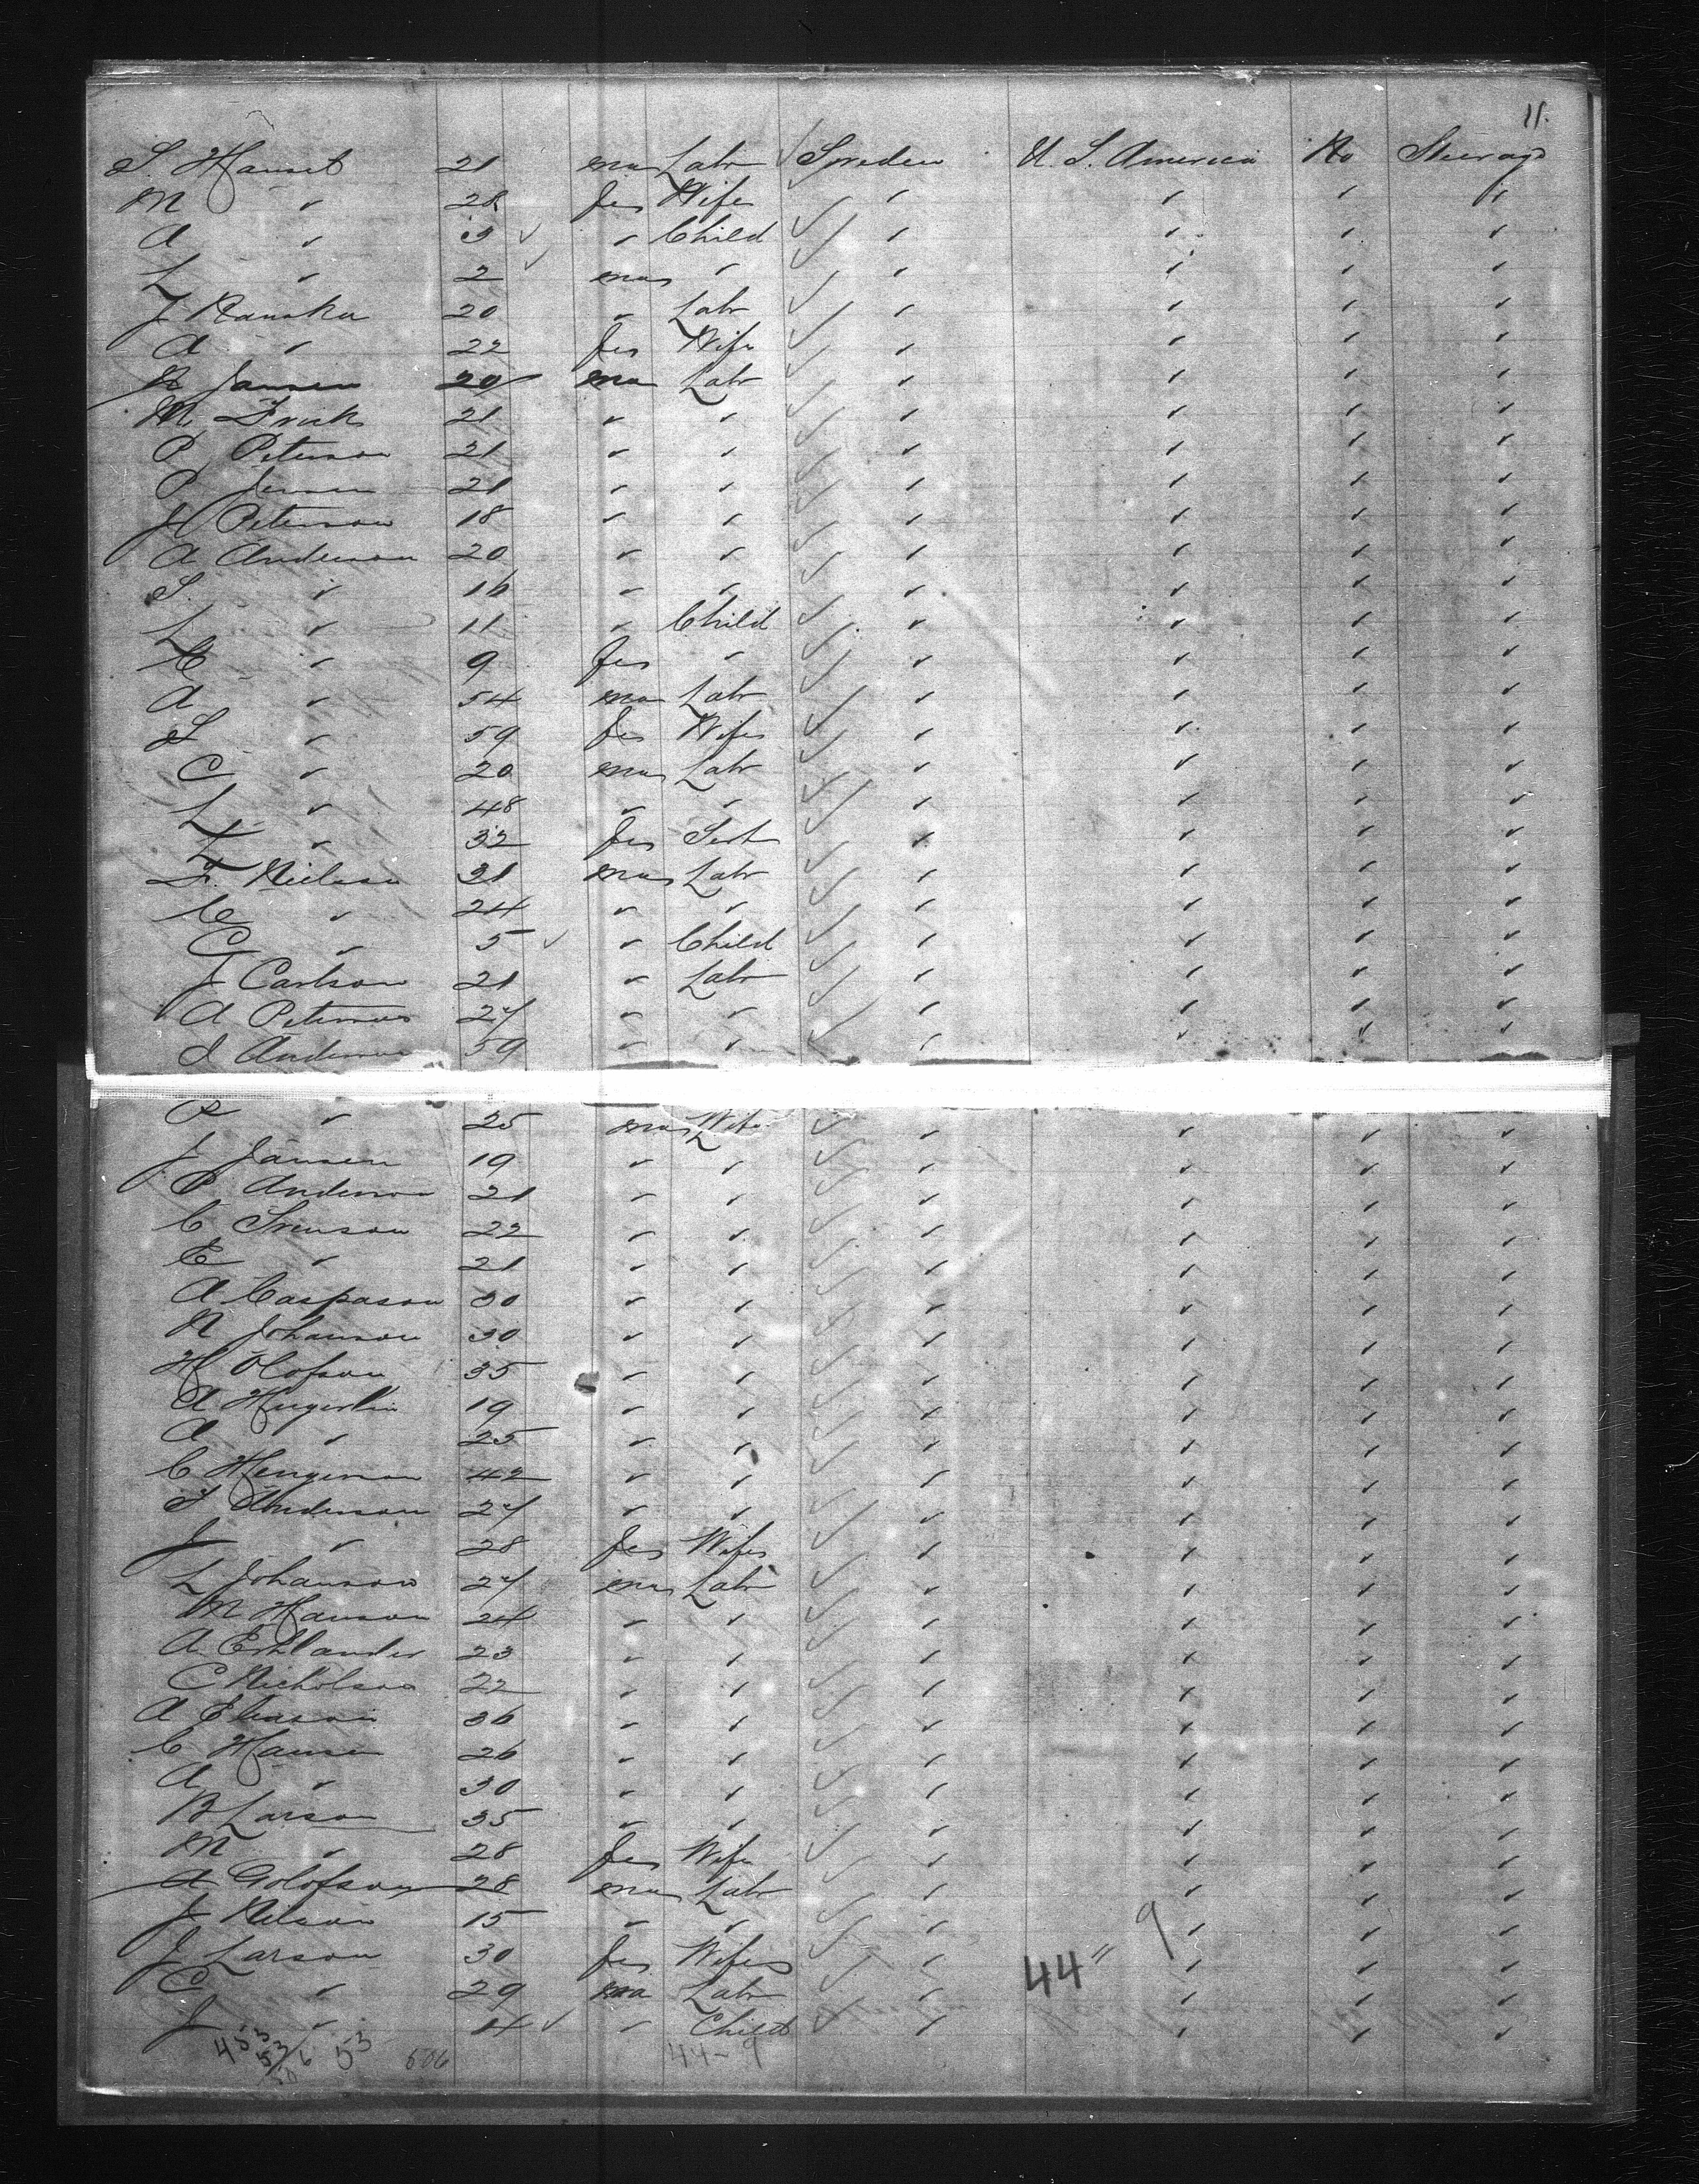 11.
S. Hanset 21 mas Labr Sweden U. S. America No Steerage
M " 28 fes Wife " " " "
A " 3 " Child " " " "
L " 2 mas " " " " "
J 20 " Labr " " " "
A " 22 fes Wife " " " "
N Jansen 20 mas Labr " " " "
M 21 " " " " " "
P Peterson 21 " " " " " "
P Jensen 21 " " " " " "
H Peterson 18 " " " " " "
A Anderson 20 " " " " " "
S. " 16 " " " " " "
L " 11 " Child " " " "
C " 9 fes " " " " "
A " 54 mas Labr " " " "
S " 59 fes Wife " " " "
C " 20 mas Labr " " " "
L " 48 " " " " " "
L " 32 fes " " " "
F. Nielsen 31 mas Labr " " " "
C " 24 " " " " " "
C " 5 " Child " " " "
J Carlson 21 " Labr " " " "
A Peterson 27 " " " " " "
J Anderson 59 " " " " " "
P " 25 mas Wife " " " "
J Jansen 19 " " " " " "
P Anderson 21 " " " " " "
C Svenson 22 " " " " " "
E " 21 " " " " " "
A Caspason 30 " " " " " "
N Johanson 30 " " " " " "
H Olofson 35 " " " " " "
A 19 " " " " " "
A " 25 " " " " " "
C Hengerson 42 " " " " " "
S Anderson 27 " " " " " "
J " 28 fes Wife " " " "
L Johanson 27 mas Labr " " " "
M Hanson 24 " " " " " "
A 23 " " " " " "
C Nicholson 22 " " " " " "
A Eleason 36 " " " " " "
C Hansen 26 " " " " " "
A " 30 " " " " " "
B Larson 35 " " " " " "
M " 28 fes Wife " " " "
A Golofson 28 mas Labr " " " "
J Nelson 15 " " " " " "
J Larson 30 fes Wife " " " "
C " 29 mas Labr " " " "
J " 4 " Child " " " "
44 " 9
453 53 506 53 506 44-9